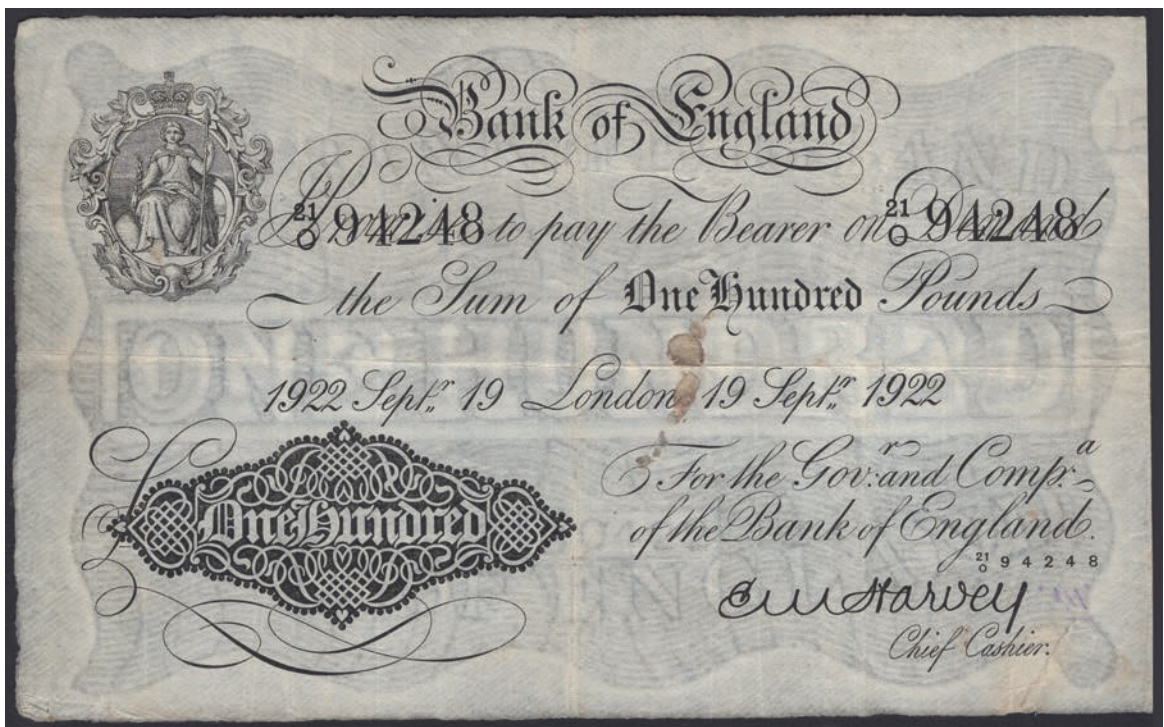 Bank of England
I Promise to pay the Bearer on Demand
21/O 94248 21/O 94248
the Sum of One Hundred Pounds
1922 Septr. 19 London, 19 Septr. 1922
For the Govr. and Compa.
of the Bank of England.
21/O 94248
£ One Hundred
E M Harvey
Chief Cashier.